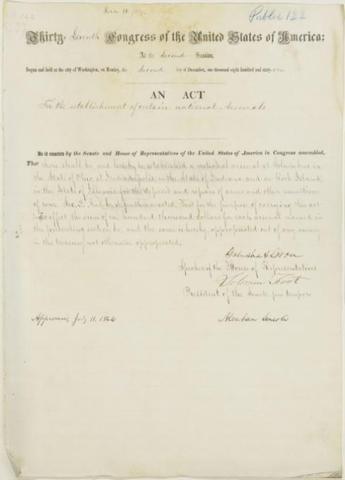 Public 122
Thirty Seventh Congress of the United States of America;
At the Second Session,
Begun and held at the city of Washington, on Monday, the Second day of December, one thousand eight hundred and sixty-one
AN ACT
For the establishment of certain national Arsenals
Be it enacted by the Senate and House of Representatives of the United States of America in Congress assembled,
That there shall be, and hereby is established a national arsenal at Columbus in
the State of Ohio, at Indianapolis in the State of Indiana and on Rock Island
in the State of Illinois for the deposit and repair of arms and other munitions
of war. Sec. 2. And be it further enacted, That for the purpose of carrying this act
into effect the sum of one hundred thousand dollars for each arsenal named in
the preceding section be, and the same is hereby appropriated out of any money
in the treasury not otherwise appropriated.
Galusha A Grow
Speaker of the House of Representatives
Solomon Foot
President of the Senate pro tempore
Approved, July 11, 1862
Abraham Lincoln